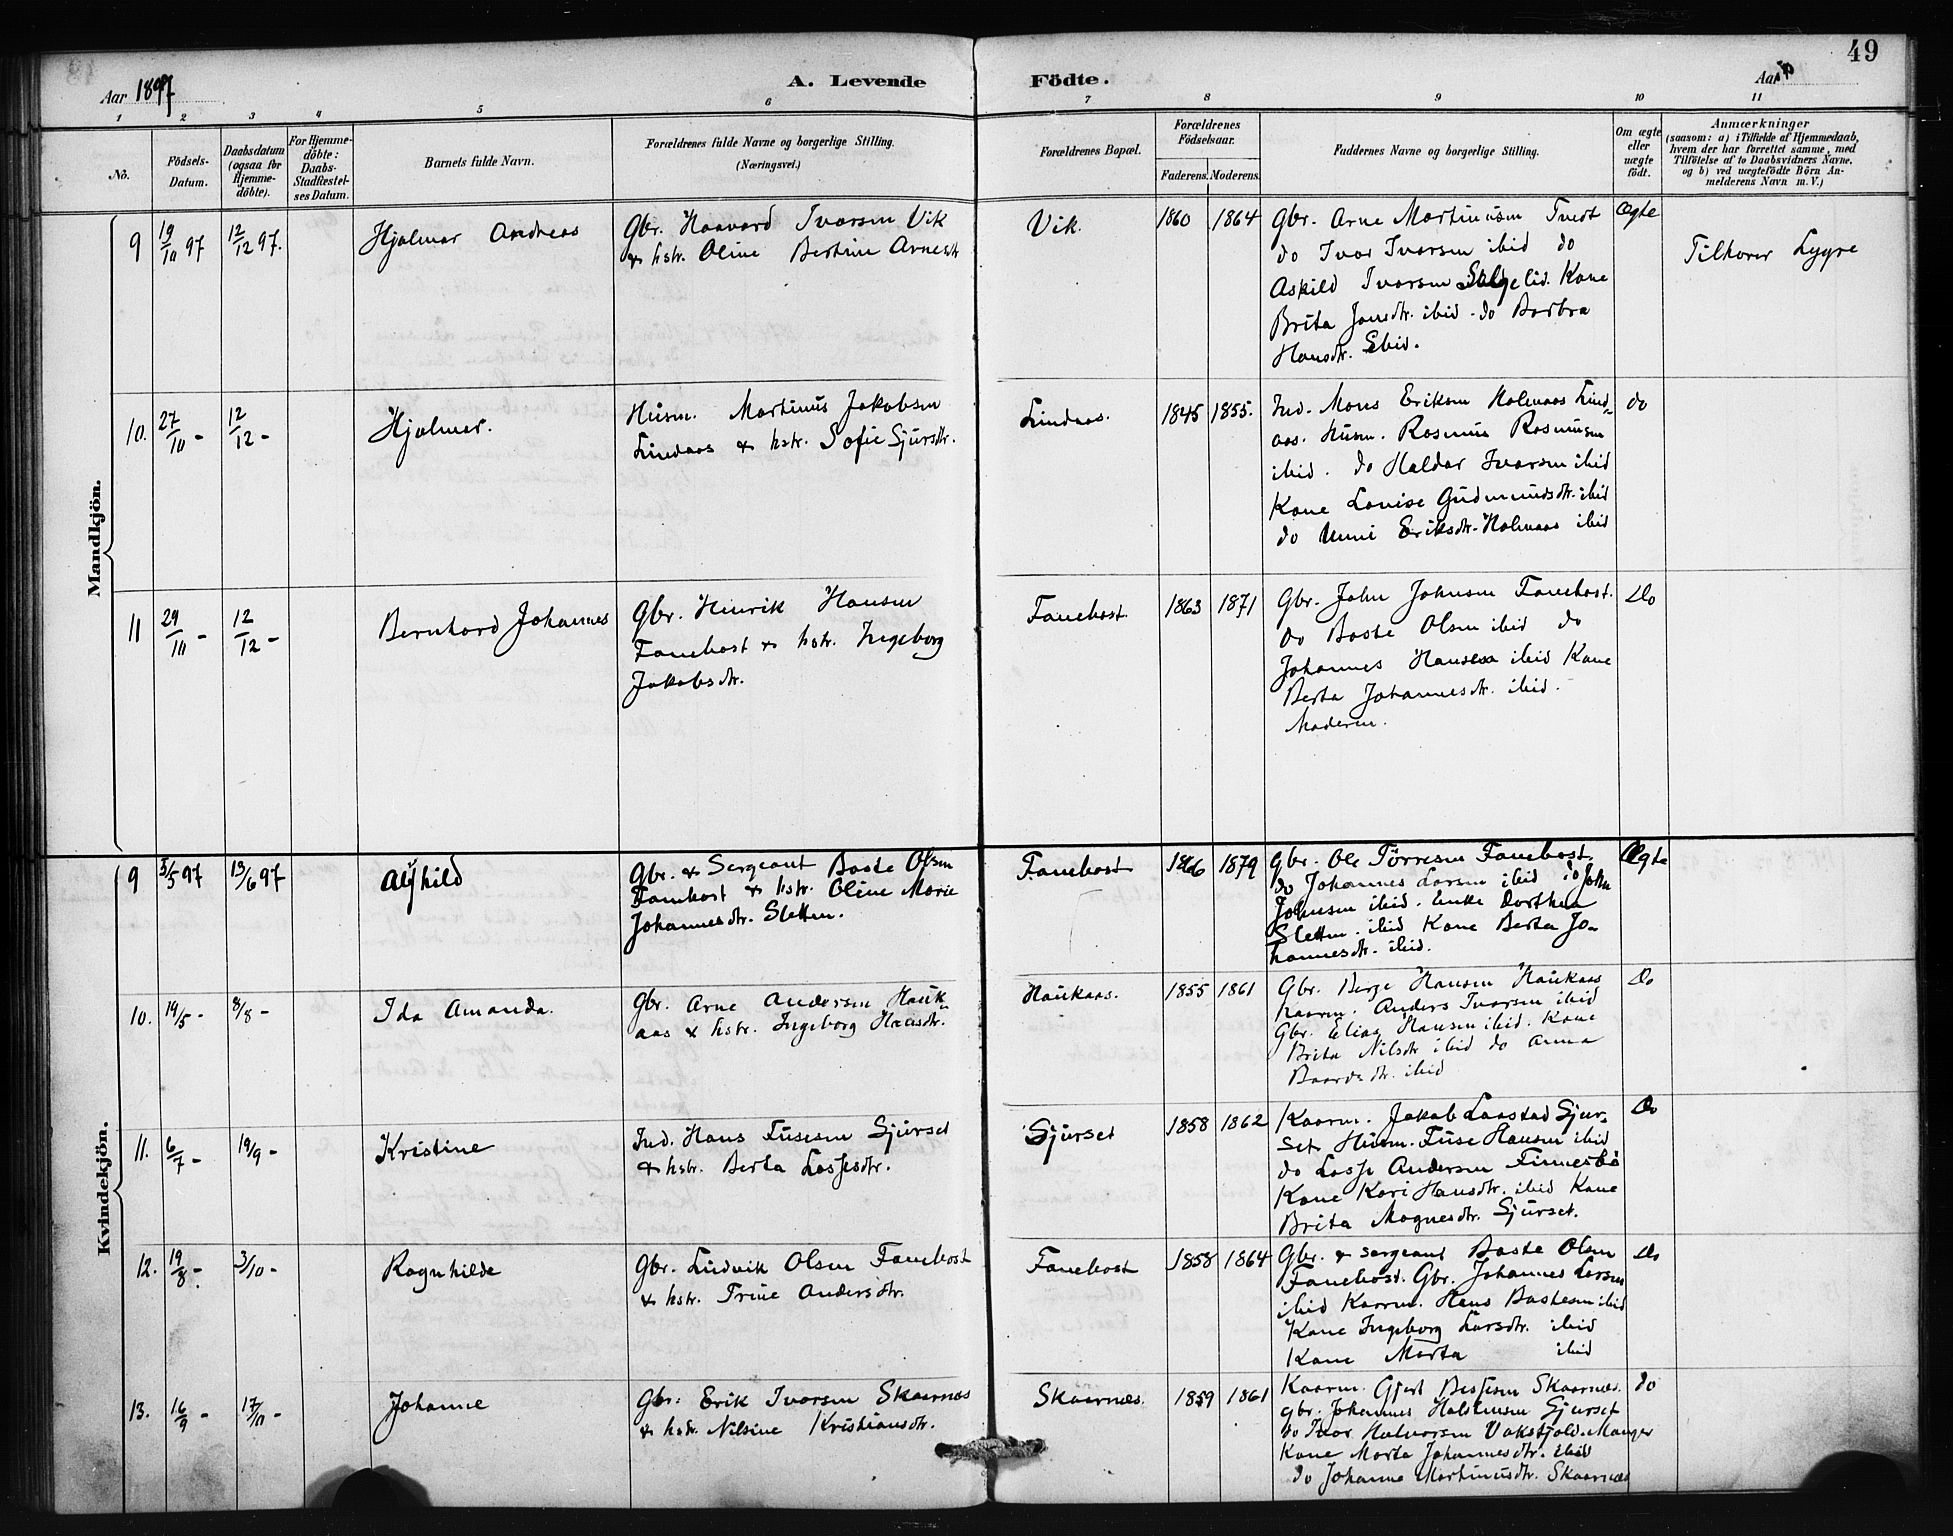 49
Aar 1897
A. Levende Födte.
Aar
1 2 3 4 5 6 7 8 9 10 11
No.
Födsels-Datum.
Daabsdatum (ogsaa for Hjemme-döbte).
For Hjemme-döbte: Daabs-Stadfestel-ses Datum.
Barnets fulde Navn.
Forældrenes fulde Navne og borgerlige Stilling.
(Næringsvei.)
Forældrenes Bopæl.
Forældrenes Födselsaar.
Faderens. Moderens.
Faddernes Navne og borgerlige Stilling.
Om ægte eller uægte födt.
Anmærkninger
(saasom: a) i Tilfælde af Hjemmedaab,
hvem der har forrettet samme, med
Tilföielse af to Daabsvidners Navne,
og b) ved uægtefödte Börn An-
melderens Navn m. V.)
Mandkjön.
9 19/10 97 12/12 97. Hjalmar Andreas
Gbr. Haavard Ivarsen Vik
& hstr. Oline Bertine Arnesdtr
Vik. 1860 1864
Gbr. Arne Martinusen Tveit
do Ivar Ivarsen ibid do
Askild Ivarsen ibid. Kone
Brita Jonsdtr. ibid. do Barbra
Hansdtr. ibid.
Ægte
Tilhører Lygre
10. 27/10 - 12/12 - Hjalmar.
Husm. Martinus Jakobsen
Lindaas & hstr. Sofie Sjursdtr.
Lindaas. 1845 1855.
Ind. Mons Eriksen Holmaas Lind-
aas. Husm. Rasmus Rasmusen
ibid. do Haldor Ivarsen ibid
Kone Lovise Gudmundsdtr. ibid
do Unni Eriksdtr. Holmaas ibid
do
11 29/10 - 12/12 - Bernhard Johannes
Gbr. Henrik Hansen
Fanebost & hstr. Ingeborg
Jakobsdtr.
Fanebost. 1863 1871
Gbr. John Johnsen Fanebost.
do Baste Olsen ibid do
Johannes Hansen ibid Kone
Berta Johannesdtr. ibid.
Moderen.
Do
Kvindekjön.
9 5/5 97 13/6 97 Alfhild
Gbr. & Sergeant Baste Olsen
Fanebost & hstr. Oline Marie
Johannesdtr. Sletten.
Fanebost 1866 1879
Gbr. Ole Törresen Fanebost.
do Johannes Larsen ibid do John
Johnsen ibid. Enke Dorthea
Sletten. ibid Kone Berta Jo-
hannesdtr. ibid.
Ægte
10. 19/5 - 8/8 - Ida Amanda.
Gbr. Arne Andersen Hauk-
aas & hstr. Ingeborg Hansdtr.
Haukaas. 1855 1861
Gbr. Berge Hansen Haukaas
Kaarm. Anders Ivarsen ibid
Gbr. Elias Hansen ibid. Kone
Brita Nilsdtr ibid do Anna
Baardsdtr. ibid
Do
11. 6/7 - 19/9 - Kristine
Ind. Hans Fusesen Sjurset
& hstr. Berta Lassesdtr.
Sjurset 1858 1862
Kaarm. Jakob Laastad Sjur-
set Husm. Fuse Hansen ibid
do Lasse Andersen Finnesbö
Kone Kari Hansdtr. ibid Kone
Brita Magnesdtr. Sjurset.
Do
12. 19/8 - 3/10 - Ragnhilde
Gbr. Ludvik Olsen Fanebost
& hstr. Trine Andersdtr.
Fanebost 1858 1864
Gbr. & sergeant Baste Olsen
Fanebost. Gbr. Johannes Larsen
ibid Kaarm. Hans Bastesen ibid
Kone Ingeborg Larsdtr. ibid
Kone Marta ibid
Do
13. 16/9 - 17/10 - Johanne
Gbr. Erik Ivarsen Skaarnæs
& hstr. Nilsine Kristiansdtr.
Skaarnæs. 1859 1861
Kaarm. Gjert Skaarnæs.
Gbr. Johannes Halstensen Sjurset
do Ivar Halvorsen Manger
Kone Marta Johannesdtr. ibid
do Johanna Martinusdtr. Skaarnæs
do